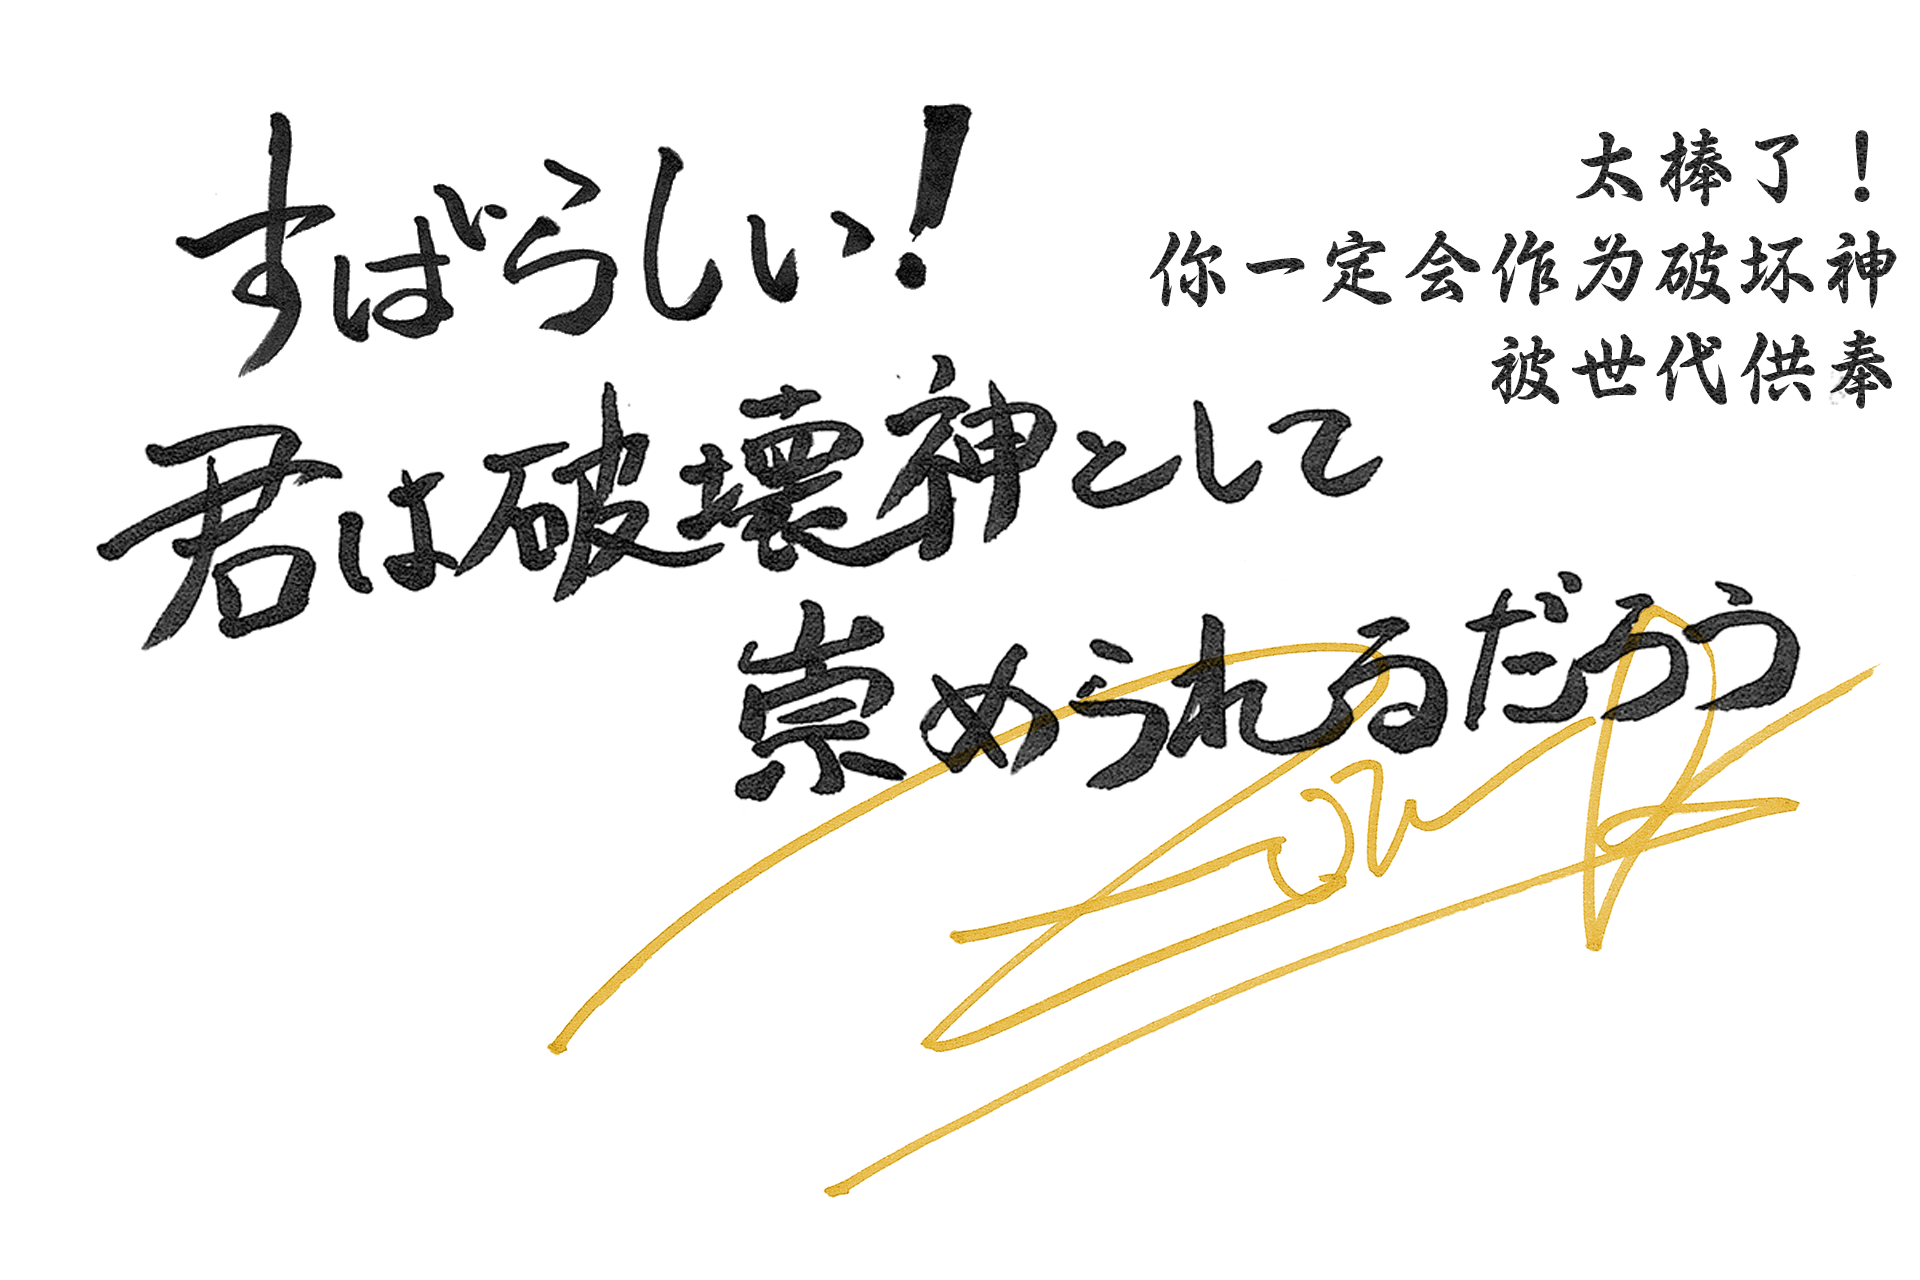 すばらしい！
君は破壊神として
崇められるだろう
太棒了！
你一定会作为破坏神
被世代供奉